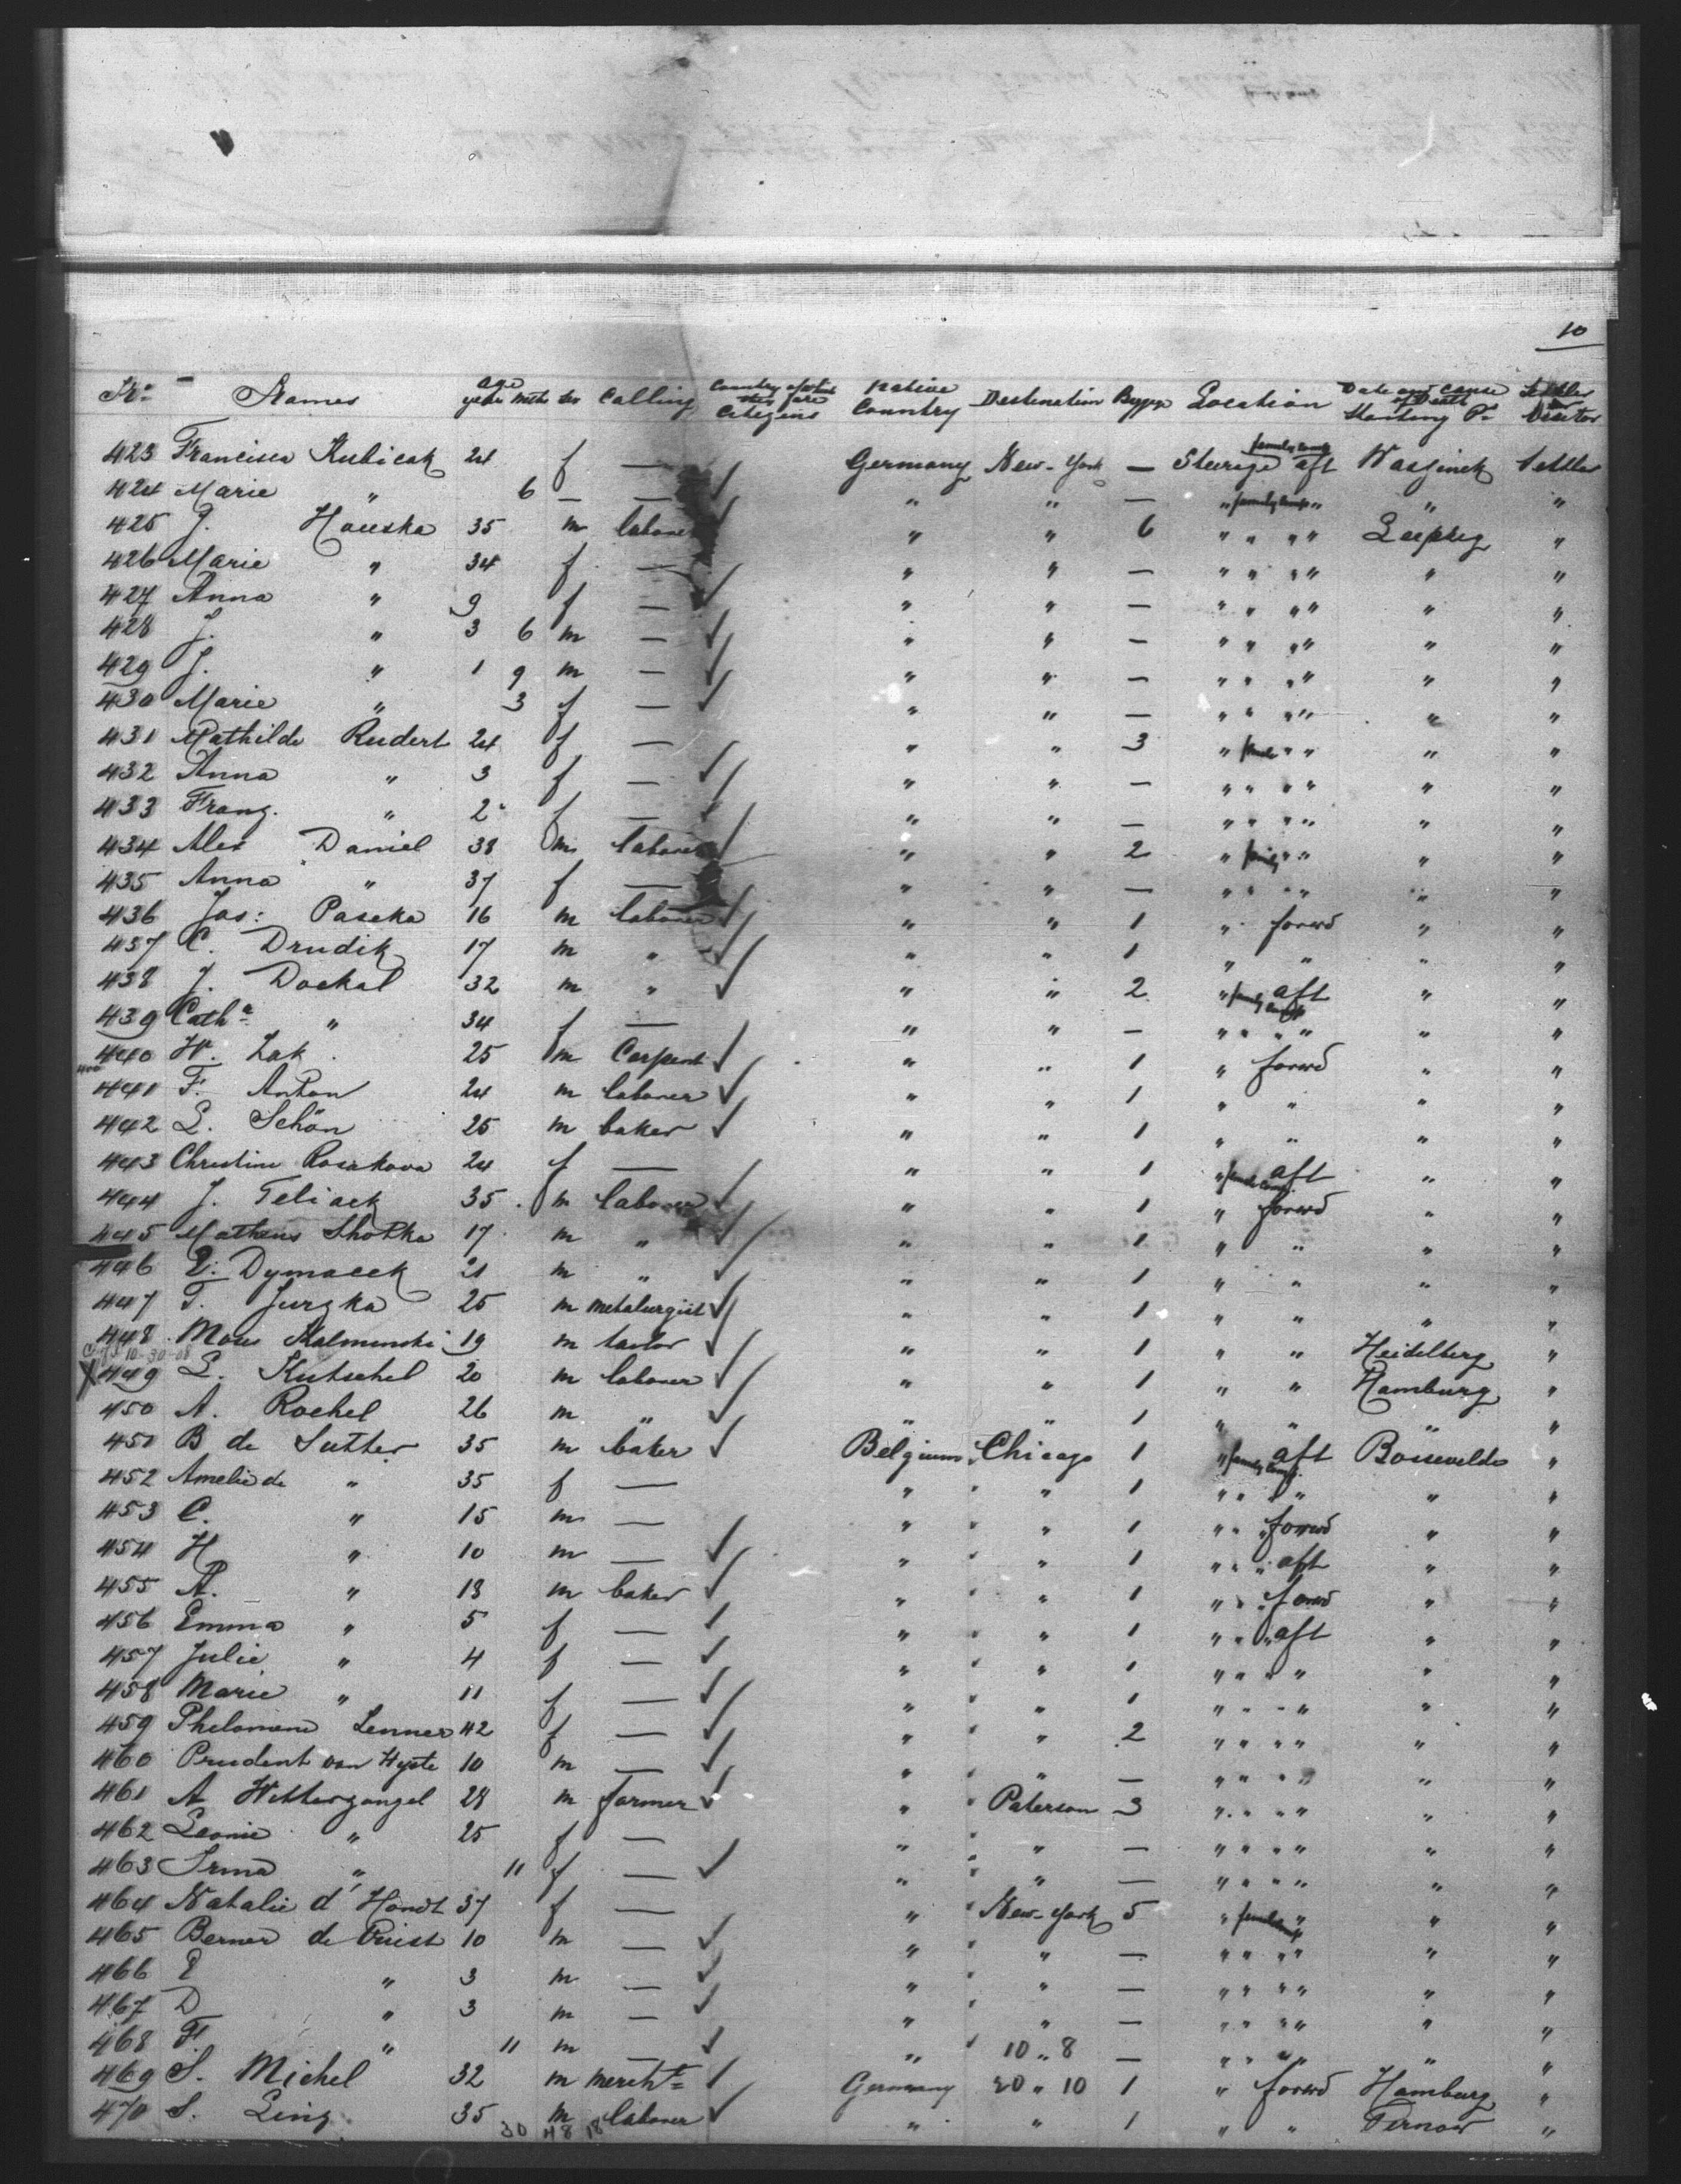 10
No. Names age year mths sex Calling Country of which they are Citizens Native Country Destination Bggge Location Date and cause of Death Starting Pt. Settler or Visitor
423 Francisca Kubicak 24 f — Germany New-York — Steerage family comp aft Settler
424 Marie " 6 — — " " — " " " "
425 J. Houska 35 m laborer " " 6 " " " " Leipzig "
426 Marie " 34 f — " " — " " " " " "
427 Anna " 9 f — " " — " " " " " "
428 J. " 3 6 m — " " — " " " " " "
429 J. " 1 9 m — " " — " " " " " "
430 Marie " 3 f — " " — " " " " " "
431 Mathilde Rudert 24 f — " " 3 " " " " "
432 Anna " 3 f — " " — " " " " " "
433 Franz. " 2 f — " " — " " " " " "
434 Alex Daniel 38 m laborer " " 2 " family " " " "
435 Anna " 37 f — " " — " " " " " "
436 Jos: Paseka 16 m laborer " " 1 " forwd " "
437 C. Drudik 17 m " " " 1 " " " "
438 J. Dockal 32 m " " " 2 " family aft " "
439 Cath a " 34 f — " " — " " " " " "
440 W. Zak 25 m Carpent " " 1 " forwd " "
441 F. Anton 24 m laborer " " 1 " " " "
442 L. Schön 25 m baker " " 1 " " " "
443 Christine Rosakova 24 f — " " 1 " aft " "
444 J. Teliack 35 m laborer " " 1 " forwd " "
445 Mathens Shotka 17 m " " " 1 " " " "
446 Dymacek 21 m " " " 1 " " " "
447 T. Jurzka 25 m metalurgist " " 1 " " " "
448 Kalmunski 19 m tailor " " 1 " " Heidelberg "
10-30-08
X 449 L. Kutschel 20 m laborer " " 1 " " Hamburg "
450 A. Rochel 26 m " " " 1 " " " "
451 B de Sutter 35 m baker Belgium Chicago 1 " family comp. aft "
452 Amelie de " 35 f — " " 1 " " " " " "
453 C. " 15 m — " " 1 " " " forwd " "
454 H " 10 m — " " 1 " " " aft " "
455 A. " 13 m baker " " 1 " " " forwd " "
456 Emma " 5 f — " " 1 " " " aft " "
457 Julie " 4 f — " " 1 " " " " " "
458 Marie " 11 f — " " 1 " " " " " "
459 Philomene Lenner 42 f — " " 2 " " " " " "
460 Prudent van Hyste 10 m — " " — " " " " " "
461 A Wittergangel 28 m farmer " Paterson 3 " " " " " "
462 Leonie " 25 f — " " — " " " " " "
463 Irma " 11 f — " " — " " " " " "
464 Natalie d' Hondt 37 f — " New-York 5 " " " "
465 Berner de Priest 10 m — " " — " " " " " "
466 E " 3 m — " " — " " " " " "
467 D " 3 m — " " — " " " " " "
468 F. " 11 m — " 10 " 8 — " " " " " "
469 S. Michel 32 m mercht Germany 20 " 10 1 " forwd Hamburg "
470 S. Ling 35 m laborer " " 1 " " Ternow "
30 48 18